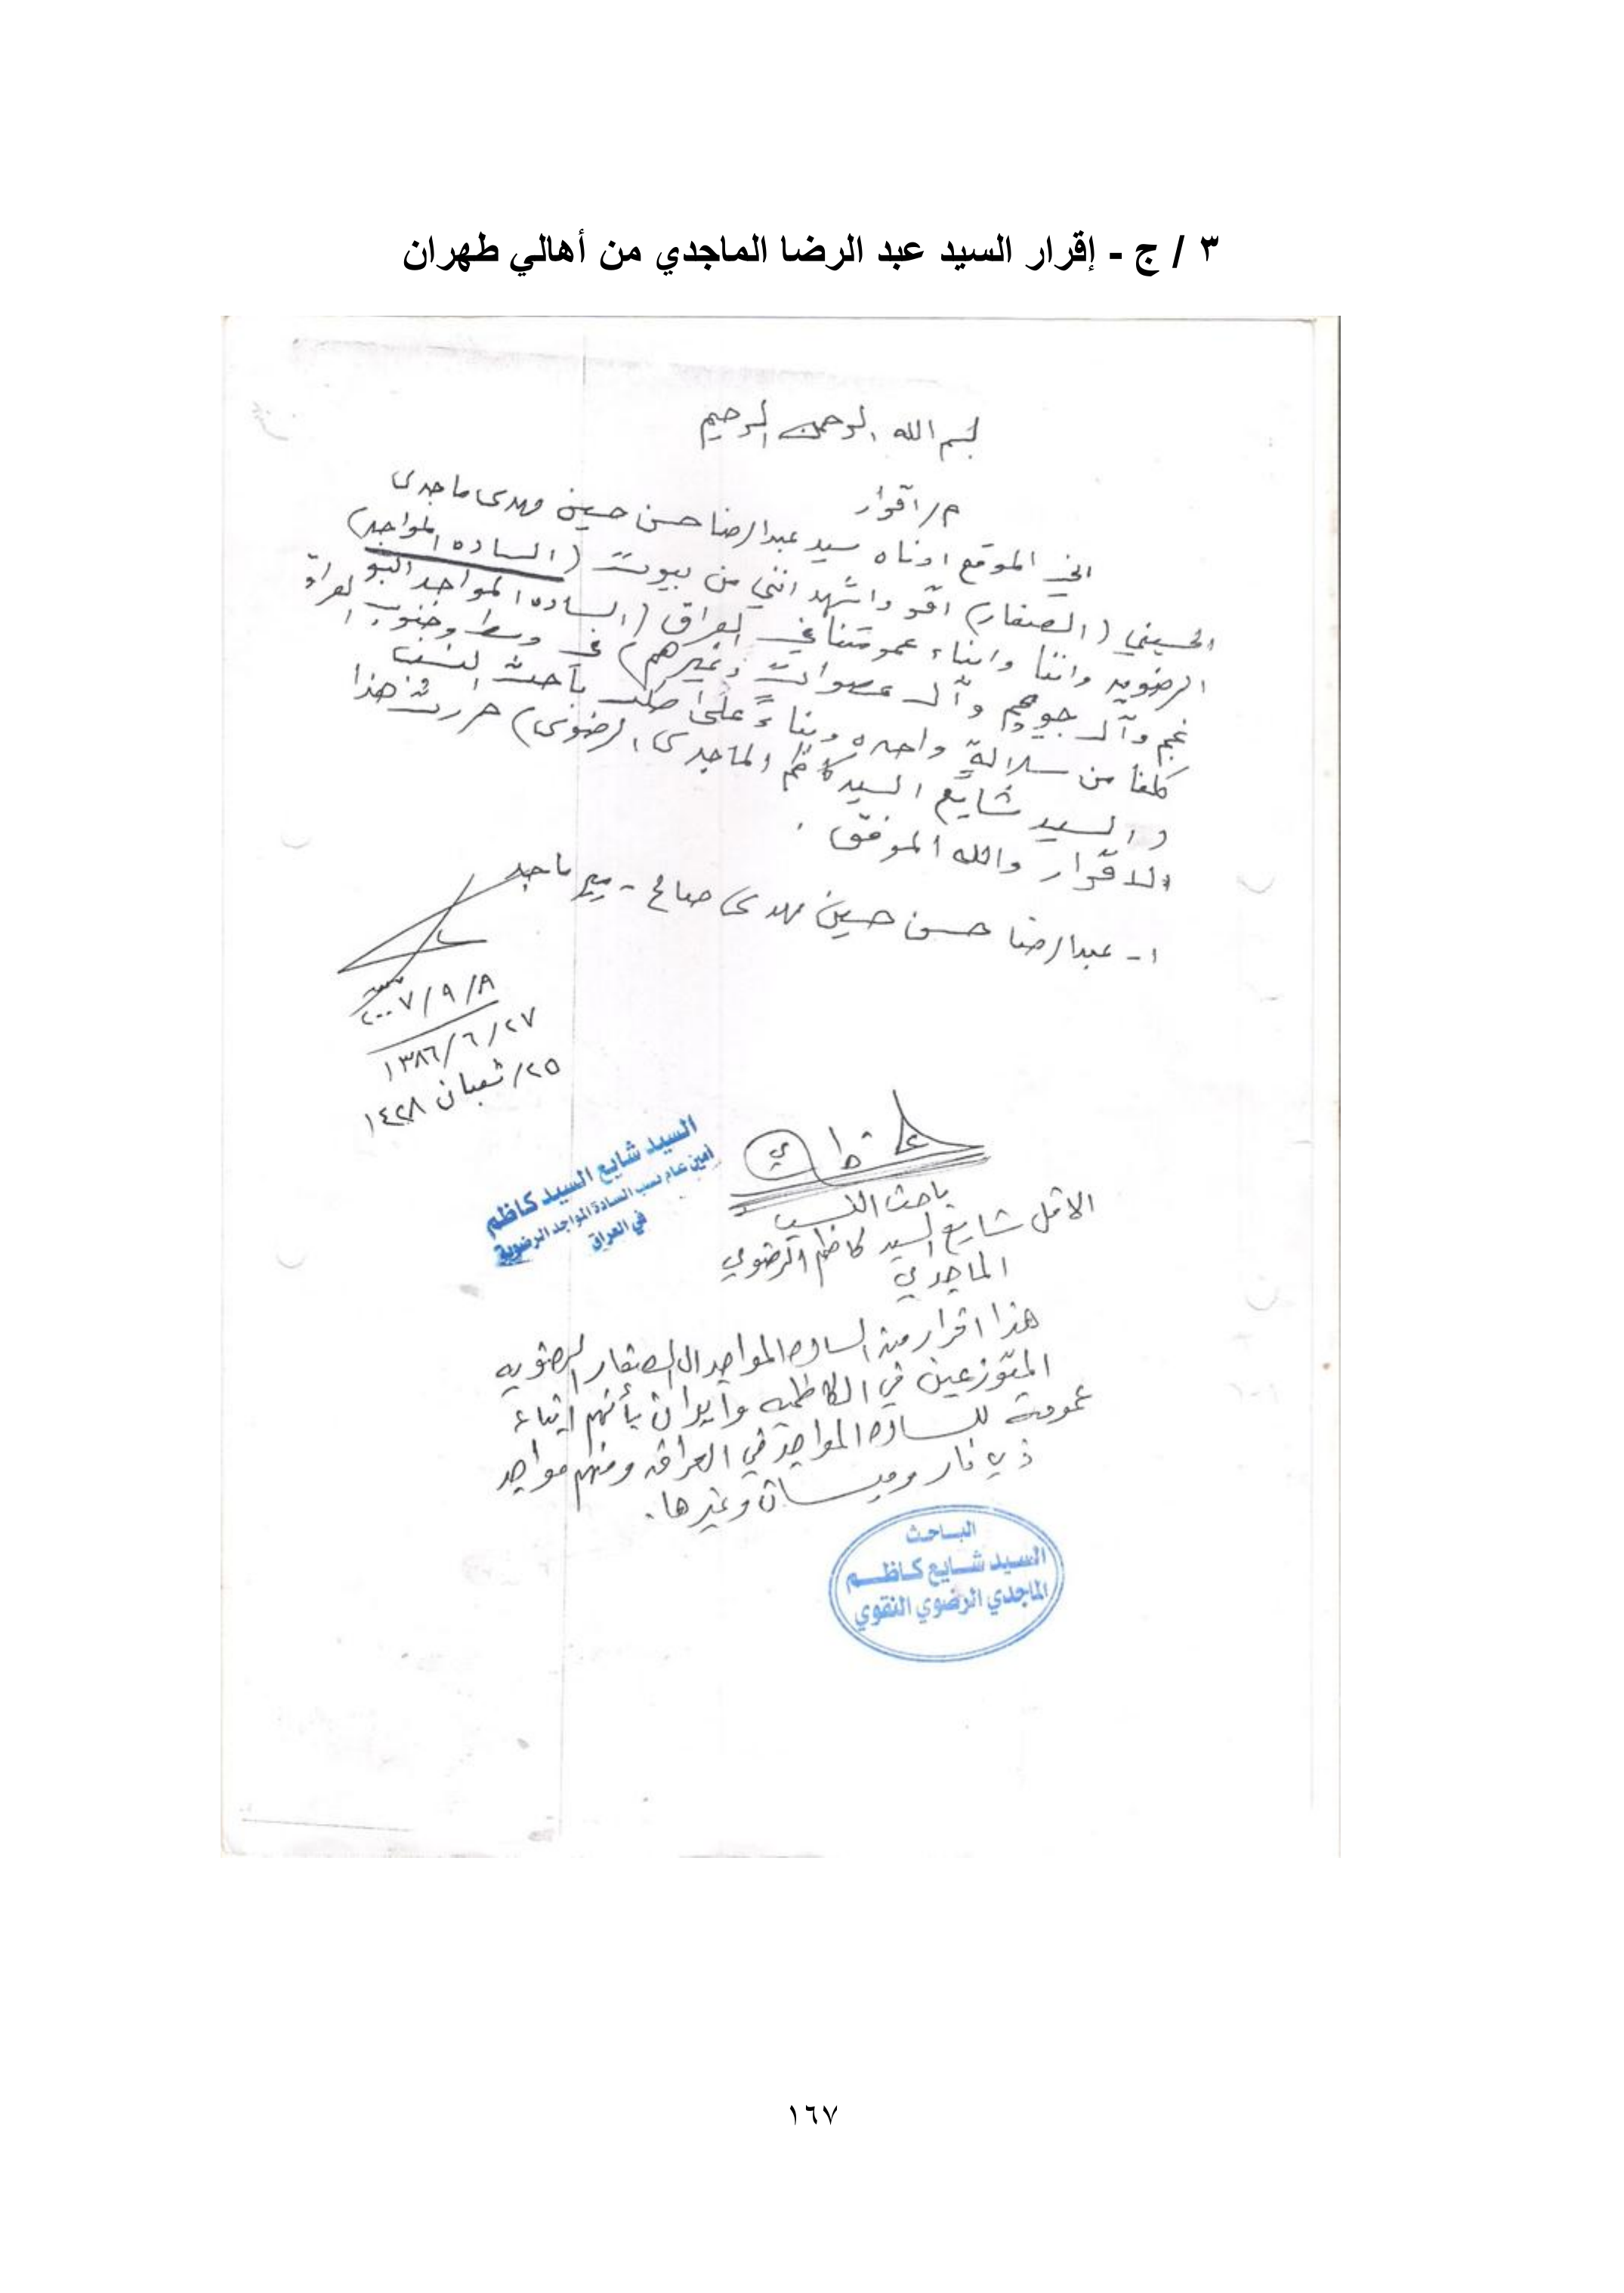 ٣ / ج - إقرار السيد عبد الرضا الماجدي من أهالي طهران
بسم الله الرحمن الرحيم
م/ اقرار
اني الموقع ادناه سيد عبدالرضا حسن حسين مهدى ماجدى
الحسيني (الصفار) اقر واشهد انني من بيوت (الساده المواجد)
الرضويه واننا وابناء عمومتنا في العراق (الساده المواجد البو
نجم وآل جويهم وآل عصوات وغيرهم) في وسط وجنوب العراق
كلنا من سلالةٍ واحده وبناءً على طلب باحث النسب
والسيد شايع السيد كاظم الماجدى الرضوى) حررت هذا
الاقرار والله الموفق.
١- عبدالرضا حسن حسين مهدى صالح - مير ماجد
٢٠٠٧/٩/٨
١٣٨٦/٦/٢٧
٢٥/ شعبان ١٤٢٨
السيد شايع السيد كاظم
امين عام نسب السادة المواجد الرضوية
في العراق
باحث النسب
الاقل شايع السيد كاظم الرضوي
الماجدي
هذا اقرار من الساده المواجد ال الصفار الرضويه
المتوزعين في الكاظميه وايران بأنهم ابناء
عمومة للساده المواجد في العراق ومنهم مواجد
ذي قار وميسان وغيرها.
الباحث
السيد شايع كاظم
الماجدي الرضوي النقوي
١٦٧